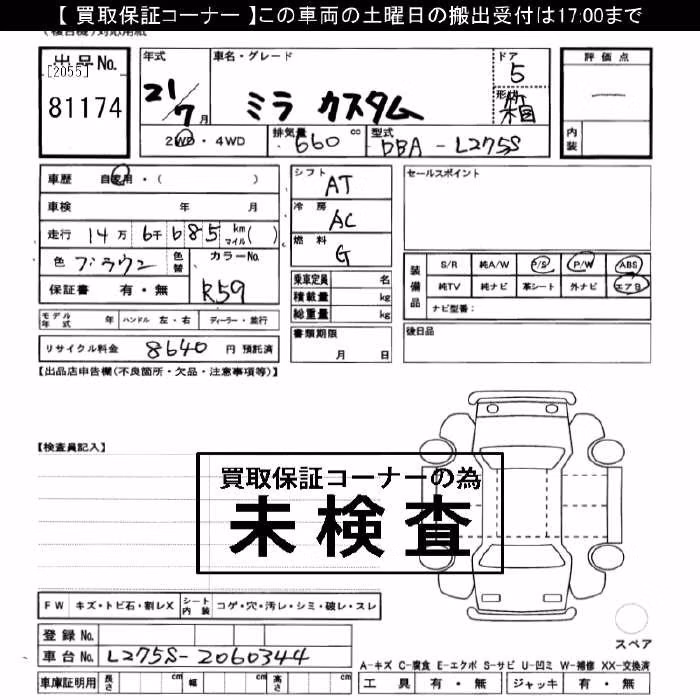 【 買取保証コーナー 】この車両の土曜日の搬出受付は17:00まで
出品No.
[2055]
81174
年式
21/7月
車名・グレード
ミラ カスタム
ドア
5
形状
箱
評価点
内装
2WD・4WD
排気量 660 cc
型式 DBA-L275S
車歴 自家用・( )
車検 年 月
走行 14万 6千 685 km マイル( )
色 ブラウン 色替
カラーNo.
R59
保証書 有・無
シフト AT
冷房 AC
燃料 G
乗車定員 名
積載量 kg
総重量 kg
セールスポイント
装備品
S/R 純A/W P/S P/W ABS
純TV 純ナビ 革シート 外ナビ エアB
ナビ型番:
モデル年式 年 ハンドル 左・右 ディーラー・並行
書類期限
月 日
後日品
リサイクル料金 8640 円 預託済
【出品店申告欄(不良箇所・欠品・注意事項等)】
【検査員記入】
買取保証コーナーの為
未検査
FW キズ・トビ石・割レX シート内装 コゲ・穴・汚レ・シミ・破レ・スレ
スペア
登録No.
車台No. L275S-2060344
A-キズ C-腐食 E-エクボ S-サビ U-凹ミ W-補修 XX-交換済
車庫証明用 長さ cm 幅 cm 高さ cm
工具 有・無 ジャッキ 有・無